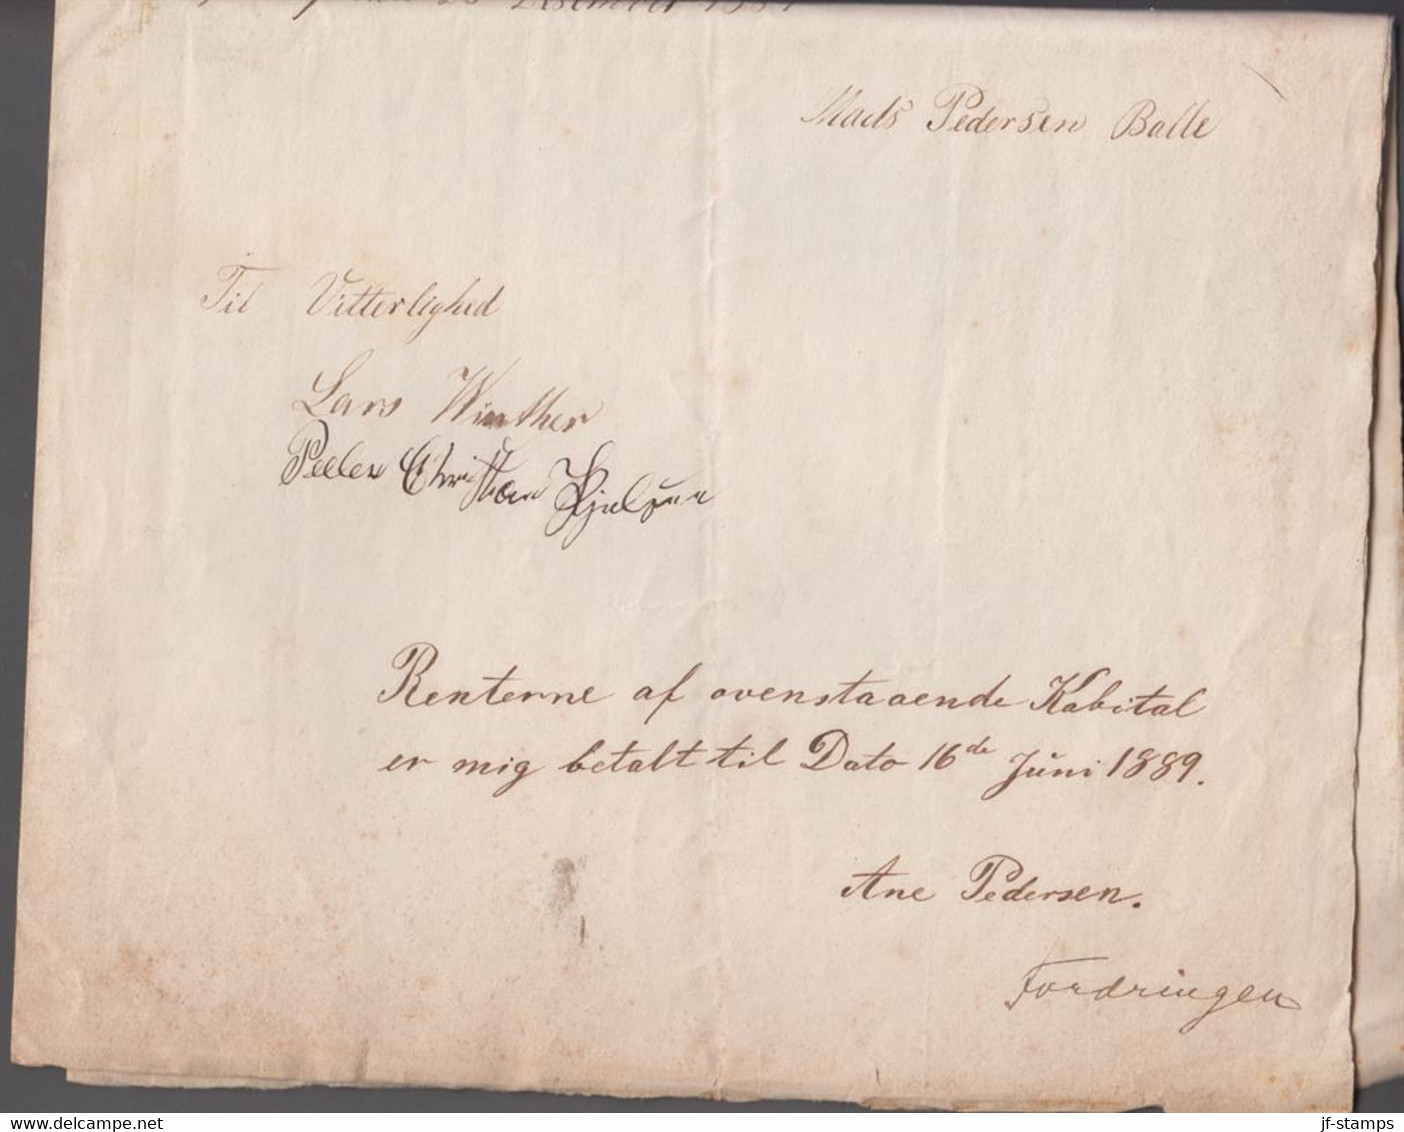 Desember
Mads Pedersen Balle
Til Vitterlighed
Lars Winther
Peder Christian
Renterne af ovenstaaende Kabital
er mig betalt til Dato 16de Juni 1889.
Ane Pedersen.
Fordringen
www.delcampe.net
jf-stamps